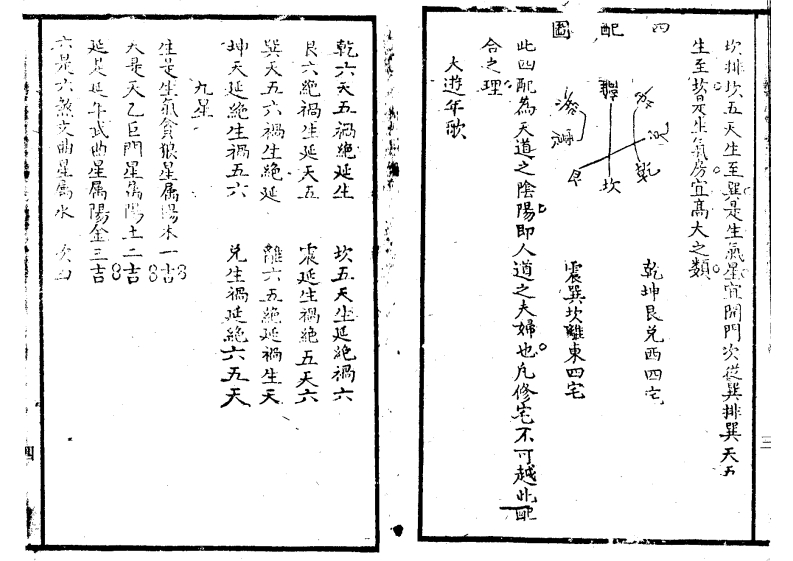 坎排坎五天生至巽是生氣星宜開門次從巽排巽天五
生至坎是生氣房宜高大之類
四配圖
乾坤艮兌西四宅
震巽坎離東四宅
乾
坎
此四配為天道之陰陽即人道之夫婦也凡修宅不可越此配
合之理
大遊年歌
三
乾六天五禍絕延生
坎五天生延絕禍六
艮六絕禍生延天五
震延生禍絕五天六
巽天五六禍生絕延
離六五絕延禍生天
坤天延絕生禍五六
兌生禍延絕六五天
九星
生是生氣貪狼星属陽木一吉
天是天乙巨門星属陽土二吉
延是延年武曲星属陽金三吉
六是六煞文曲星属水 次凶
四